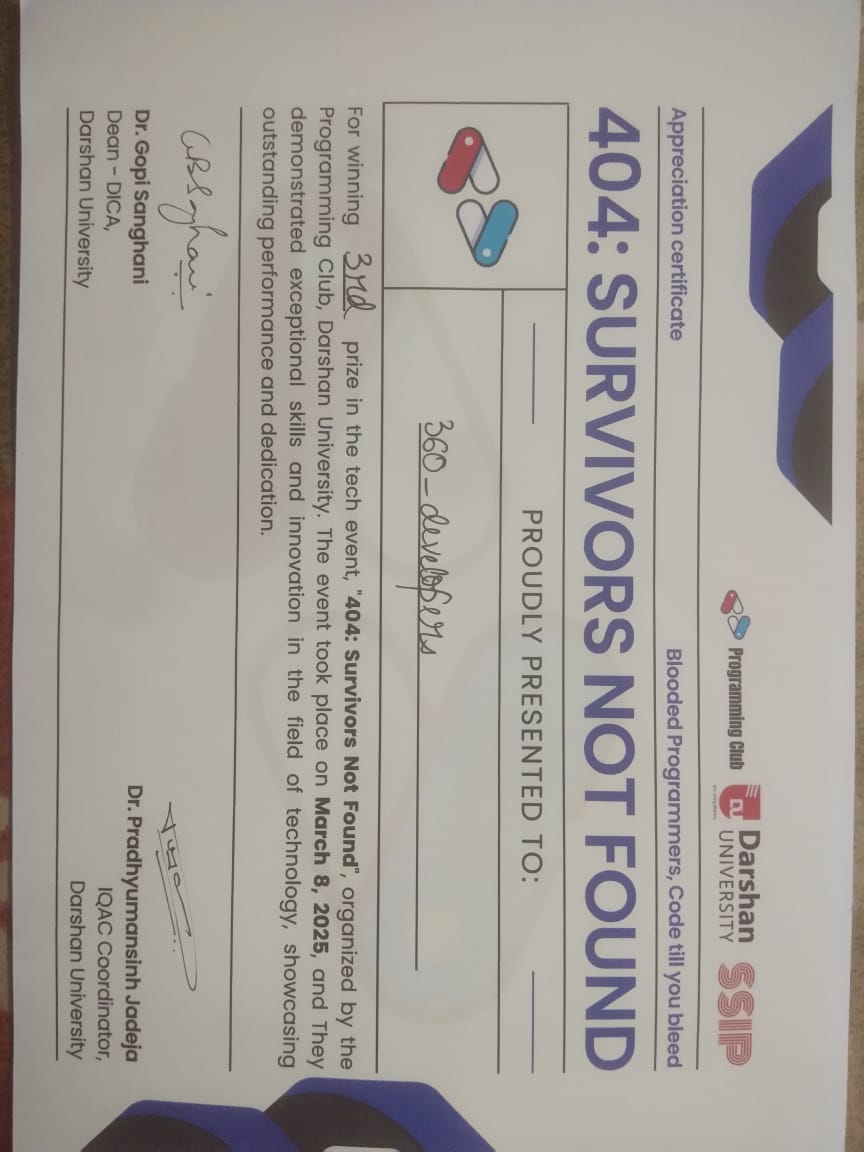 Programming Club
Darshan
UNIVERSITY
SSIP
Appreciation certificate
Blooded Programmers, Code till you bleed
404: SURVIVORS NOT FOUND
PROUDLY PRESENTED TO:
360-developers
For winning 3rd prize in the tech event, "404: Survivors Not Found", organized by the
Programming Club, Darshan University. The event took place on March 8, 2025, and They
demonstrated exceptional skills and innovation in the field of technology, showcasing
outstanding performance and dedication.
Dr. Gopi Sanghani
Dean - DICA,
Darshan University
Dr. Pradhyumansinh Jadeja
IQAC Coordinator,
Darshan University